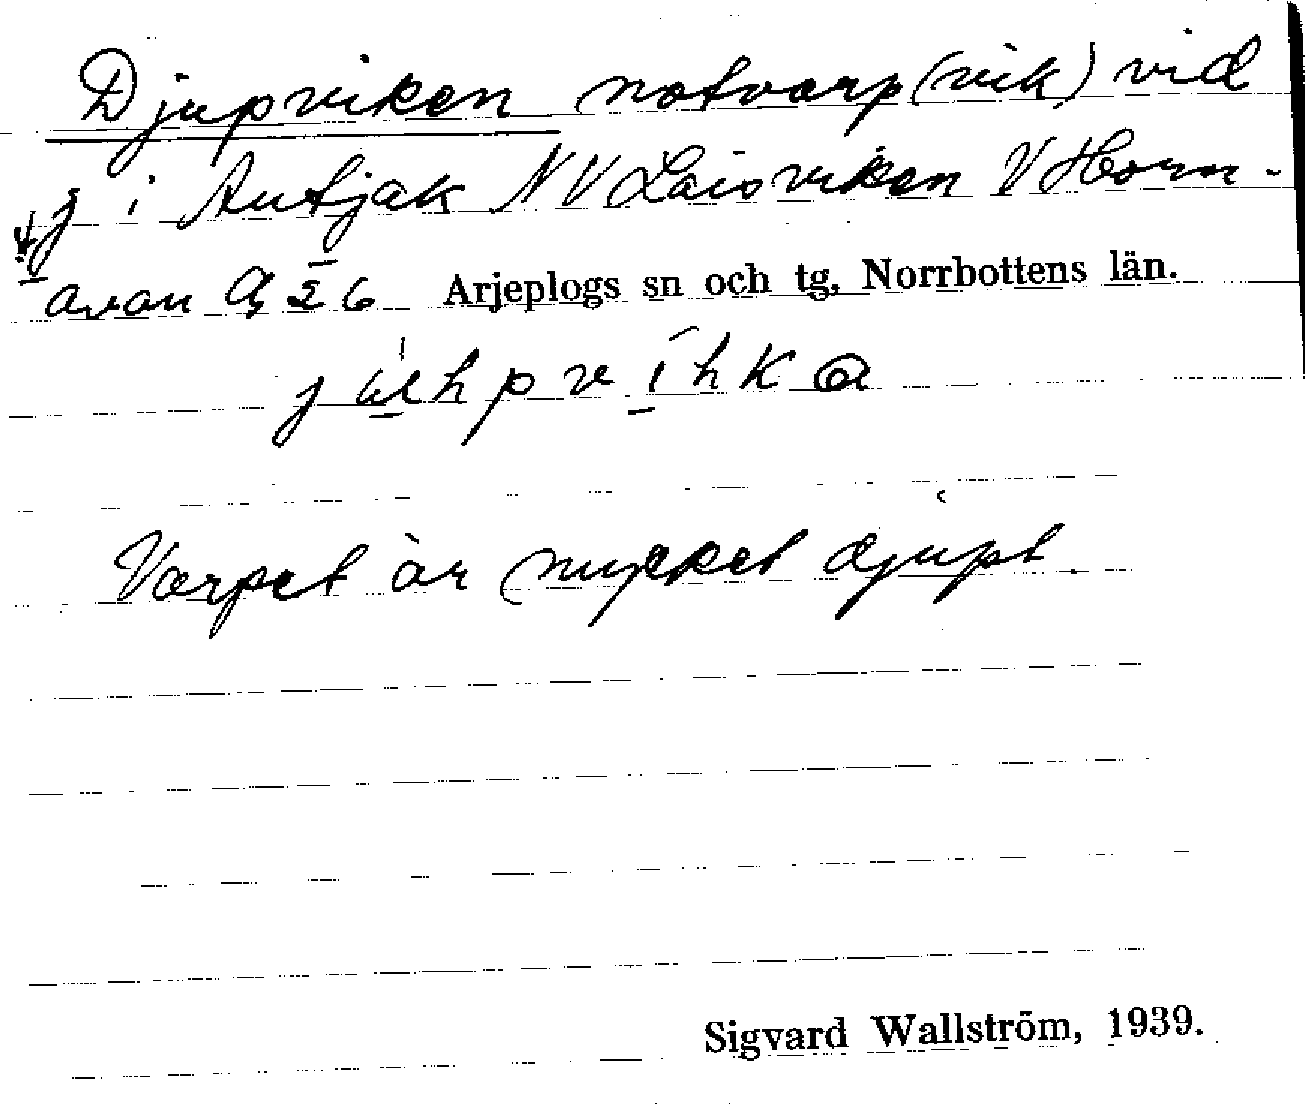 Djupviken notvarp (vik) vid
j i Autjak NV Laisviken V Horn-
avan Arjeplogs sn och tg, Norrbottens län.
Varpet är mycket djupt.
Sigvard Wallström, 1939.